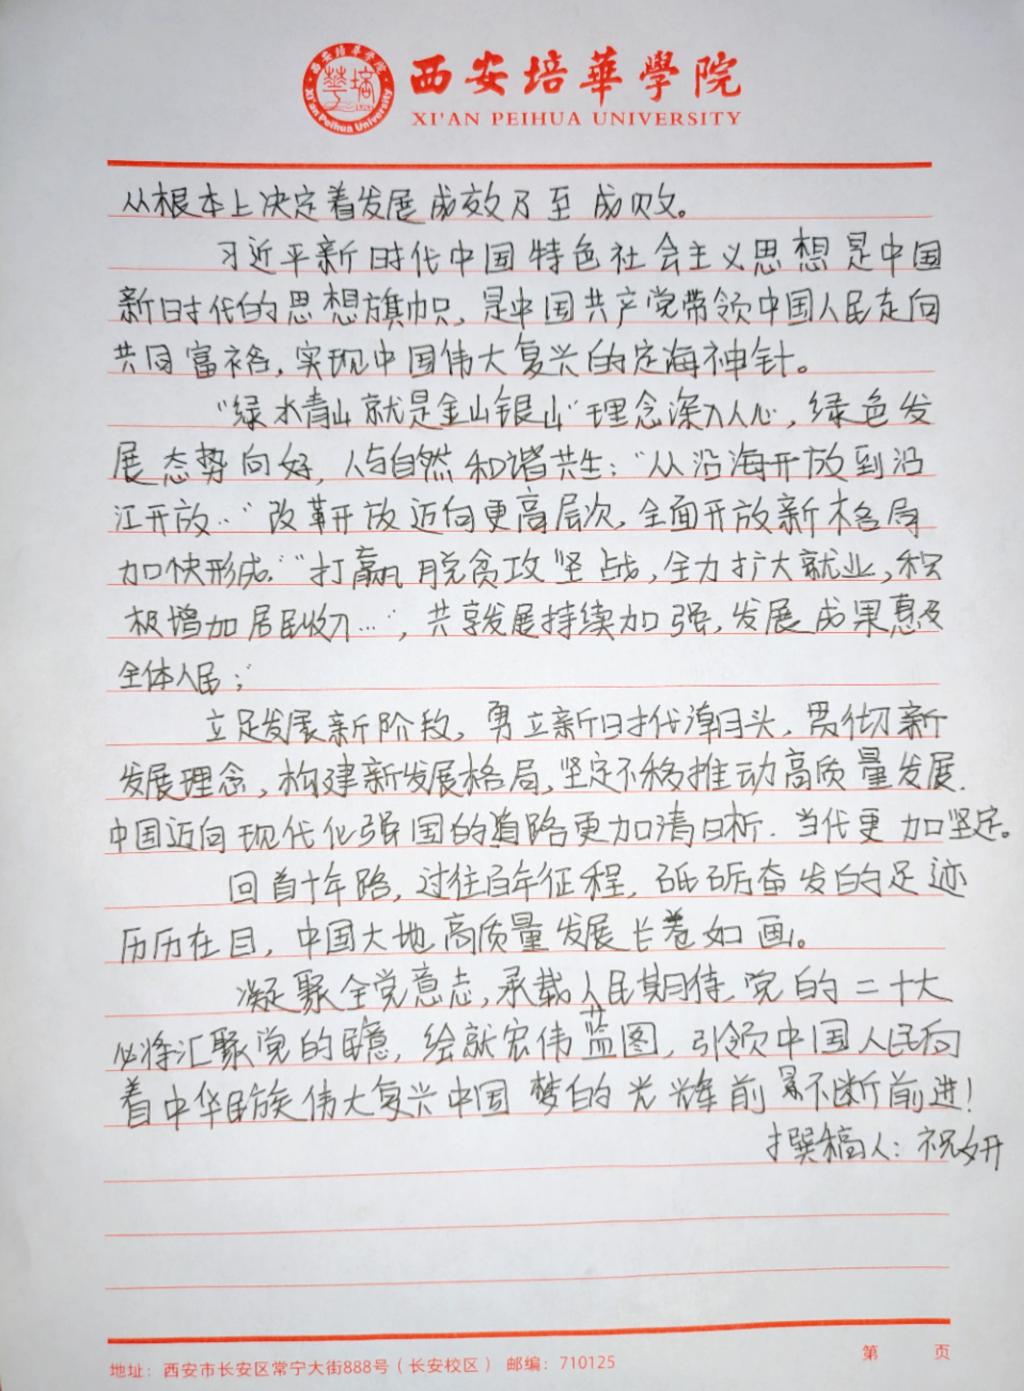 西安培華學院
XI'AN PEIHUA UNIVERSITY
从根本上决定着发展成效乃至成败。
习近平新时代中国特色社会主义思想是中国
新时代的思想旗帜,是中国共产党带领中国人民走向
共同富裕,实现中国伟大复兴的定海神针。
“绿水青山就是金山银山”理念深入人心,绿色发
展态势向好,人与自然和谐共生;“从沿海开放到沿
江开放…”改革开放迈向更高层次,全面开放新格局
加快形成;“打赢脱贫攻坚战,全力扩大就业,积
极增加居民收入…”,共享发展持续加强,发展成果惠及
全体人民;
立足发展新阶段,勇立新时代潮头,贯彻新
发展理念,构建新发展格局,坚定不移推动高质量发展.
中国迈向现代化强国的道路更加清晰.当代更加坚定。
回首十年路,过往百年征程,砥砺奋发的足迹
历历在目,中国大地高质量发展长卷如画。
凝聚全党意志,承载人民期待.党的二十大
必将汇聚党的 意,绘就宏伟蓝图,引领中国人民向
着中华民族伟大复兴中国梦的光辉前景不断前进!
撰稿人:祝妍
地址:西安市长安区常宁大街888号(长安校区) 邮编:710125
第 页
西安培华学院
Xi'an Peihua University